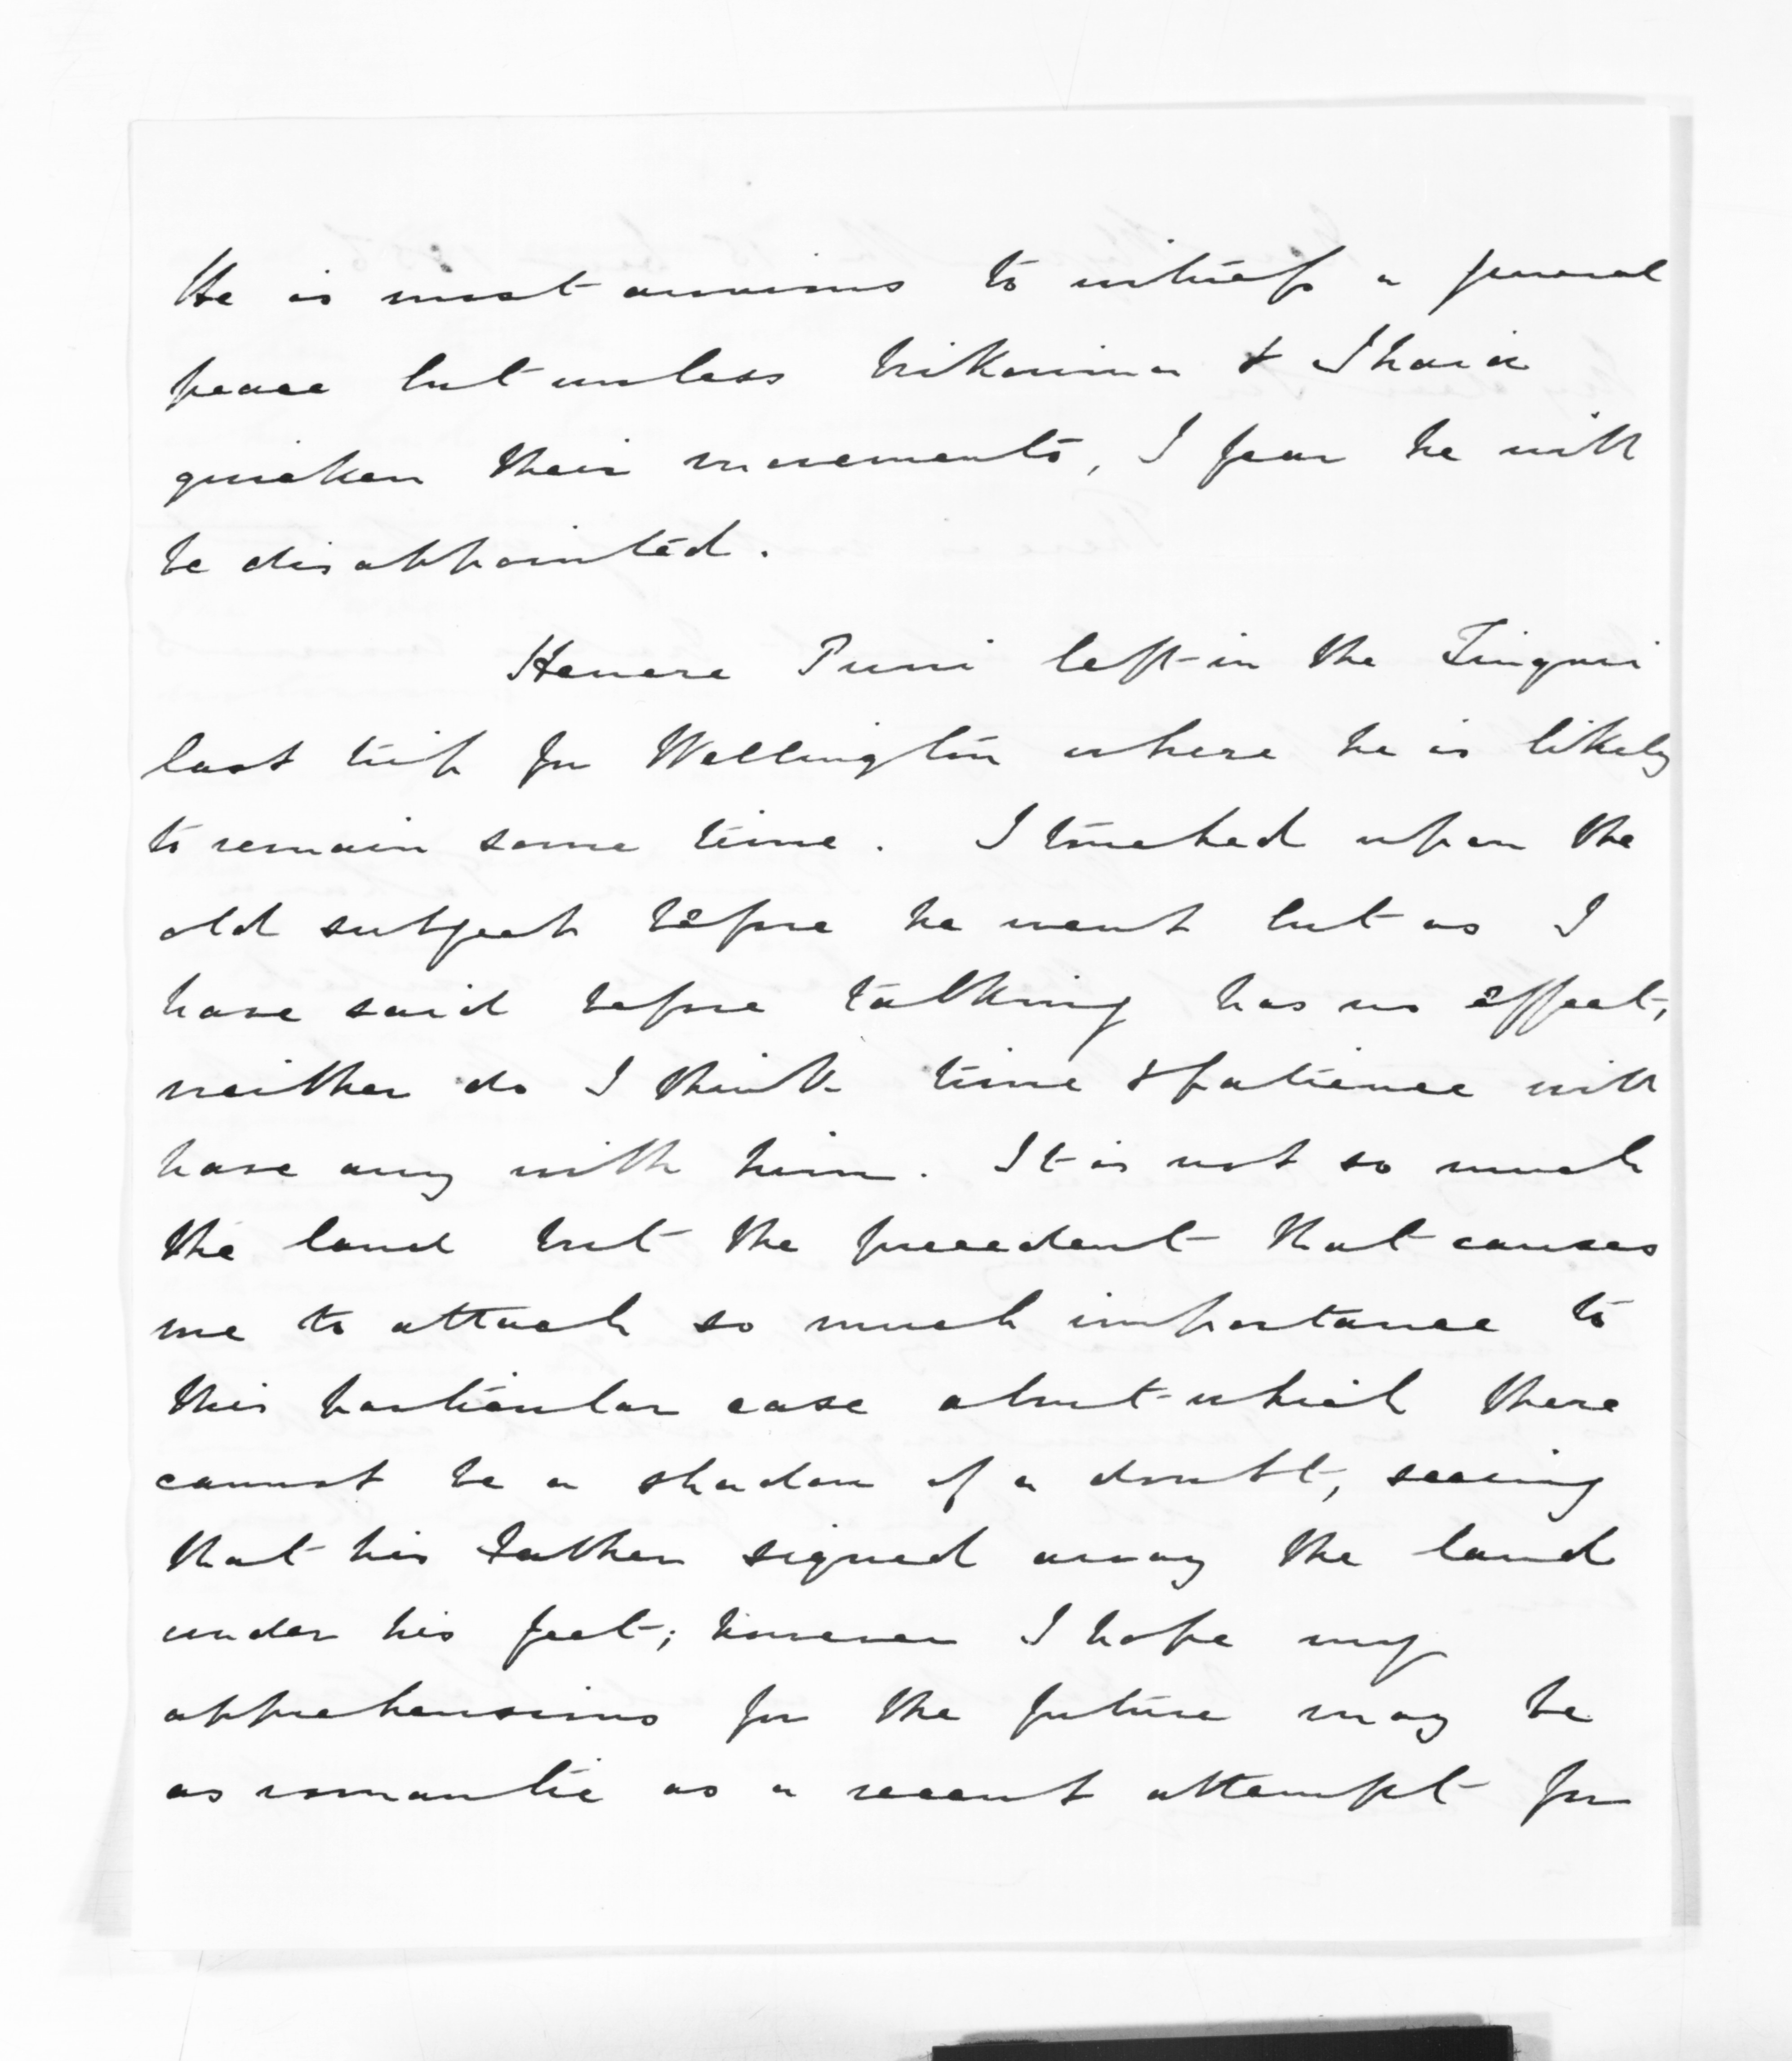 He is most anxious to witness a general
peace but unless Wikowira & Ihaia
quicken their movements, I fear he will
be disappointed.
Henere Puni left in the Zingari
last trip for Wellington where he is likely
to remain some time. I touched upon the
old subject before he went but as I
have said before talking has no effect,
neither do I think time & patience will
have any with him. It is not so much
the land but the precedent that causes
me to attach so much importance to
this particular case about which there
cannot be a shadow of a doubt, seeing
that his Father signed away the land
under his feet; however I hope my
apprehensions for the future may be
as romantic as a recent attempt for